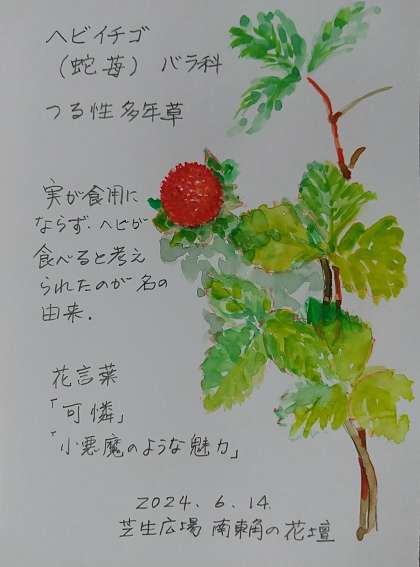 ヘビイチゴ
(蛇苺) バラ科
つる性多年草
実が食用に
ならず、ヘビが
食べると考え
られたのが名の
由来.
花言葉
「可憐」
「小悪魔のような魅力」
2024.6.14.
芝生広場 南東角の花壇